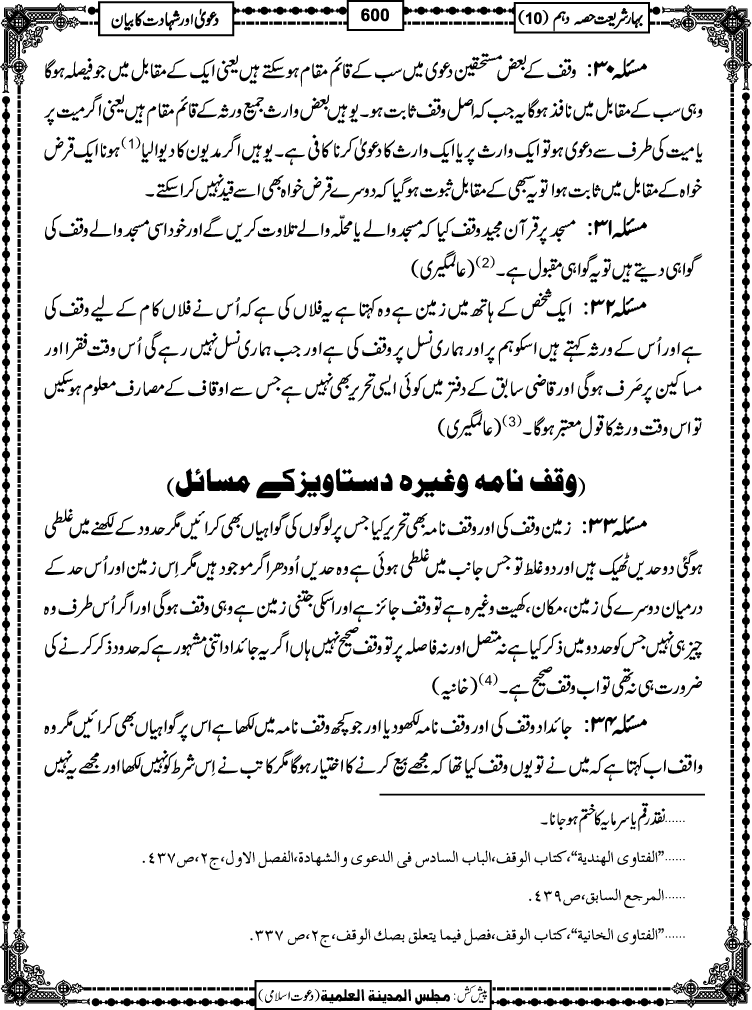 بہارِ شریعت حصہ دہم (10)
600
دعویٰ اور شہادت کا بیان
مسئلہ ۳۰: وقف کے بعض مستحقین دعویٰ میں سب کے قائم مقام ہوسکتے ہیں یعنی ایک کے مقابل میں جو فیصلہ ہوگا
وہی سب کے مقابل میں نافذ ہوگا یہ جب کہ اصل وقف ثابت ہو۔ یوہیں بعض وارث جمیع ورثہ کے قائم مقام ہیں یعنی اگر میت پر
یا میت کی طرف سے دعویٰ ہو تو ایک وارث پر یا ایک وارث کا دعویٰ کرنا کافی ہے۔ یوہیں اگر مدیون کا دیوالیا(1) ہونا ایک قرض
خواہ کے مقابل میں ثابت ہوا تو یہ سبھی کے مقابل ثبوت ہوگیا کہ دوسرے قرض خواہ بھی اسے قید نہیں کراسکتے۔
مسئلہ ۳۱: مسجد پر قرآن مجید وقف کیا کہ مسجد والے یا محلّہ والے تلاوت کریں گے اور خود اسی مسجد والے وقف کی
گواہی دیتے ہیں تو یہ گواہی مقبول ہے۔(2) (عالمگیری)
مسئلہ ۳۲: ایک شخص کے ہاتھ میں زمین ہے وہ کہتا ہے یہ فلاں کی ہے کہ اُس نے فلاں کام کے لیے وقف کی
ہے اور اُس کے ورثہ کہتے ہیں اسکو ہم پر اور ہماری نسل پر وقف کی ہے اور جب ہماری نسل نہیں رہے گی اُس وقت فقرا اور
مساکین پر صَرف ہوگی اور قاضی سابق کے دفتر میں کوئی ایسی تحریر بھی نہیں ہے جس سے اوقاف کے مصارف معلوم ہوسکیں
تو اس وقت ورثہ کا قول معتبر ہوگا۔(3) (عالمگیری)
(وقف نامہ وغیرہ دستاویز کے مسائل)
مسئلہ ۳۳: زمین وقف کی اور وقف نامہ بھی تحریر کیا جس پر لوگوں کی گواہیاں بھی کرائیں مگر حدود کے لکھنے میں غلطی
ہوگئی دو حدیں ٹھیک ہیں اور دو غلط تو جس جانب میں غلطی ہوئی ہے وہ حدیں اُودھر اگر موجود ہیں مگر اِس زمین اور اُس حد کے
درمیان دوسرے کی زمین، مکان، کھیت وغیرہ ہے تو وقف جائز ہے اور اسکی جتنی زمین ہے وہی وقف ہوگی اور اگر اُس طرف وہ
چیز ہی نہیں جس کو حدود میں ذکر کیا ہے نہ متصل اور نہ فاصلہ پر تو وقف صحیح نہیں ہاں اگر یہ جائداد اتنی مشہور ہے کہ حدود ذکر کرنے کی
ضرورت ہی نہ تھی تو اب وقف صحیح ہے۔(4) (خانیہ)
مسئلہ ۳۴: جائداد وقف کی اور وقف نامہ لکھودیا اور جو کچھ وقف نامہ میں لکھا ہے اس پر گواہیاں بھی کرائیں مگر وہ
واقف اب کہتا ہے کہ میں نے تو یوں وقف کیا تھا کہ مجھے بیع کرنے کا اختیار ہوگا مگر کاتب نے اِس شرط کو نہیں لکھا اور مجھے یہ نہیں
......نقد رقم یا سرمایہ کا ختم ہو جانا۔
......”الفتاوی الھندیة“، کتاب الوقف، الباب السادس فی الدعوی والشھادة، الفصل الاول، ج۲، ص۴۳۷.
......المرجع السابق، ص۴۳۹.
......”الفتاوی الخانیة“، کتاب الوقف، فصل فیما یتعلق بصك الوقف، ج۲، ص ۳۳۷.
پیش کش: مجلس المدینة العلمیة (دعوت اسلامی)